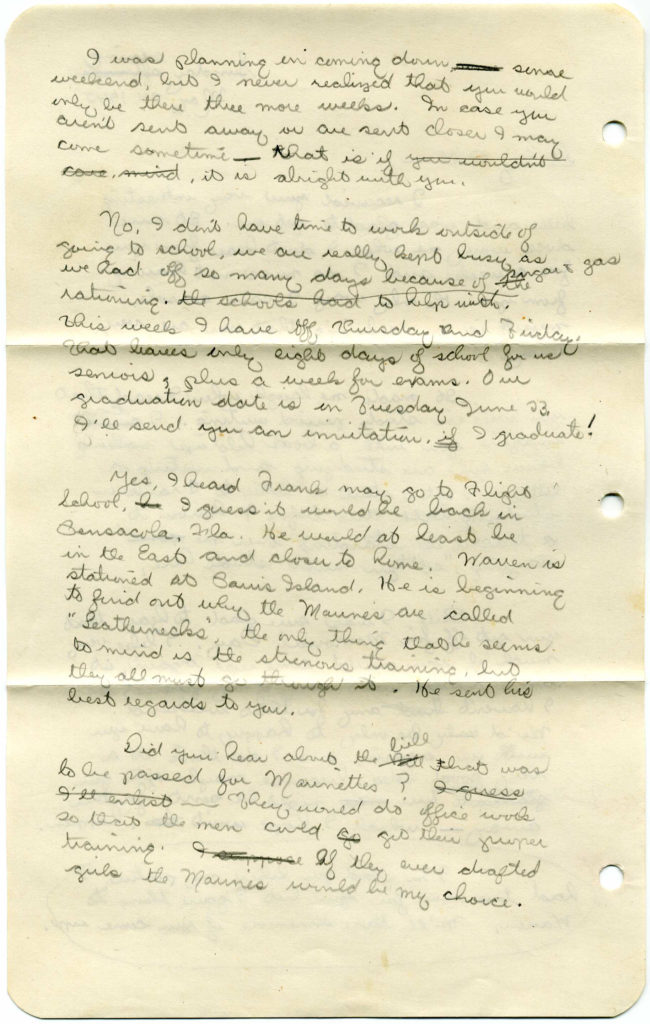 I was planning on coming down some
weekend, but I never realized that you would
only be there three more weeks. In case you
aren't sent away or are sent closer I may
come sometime — that is if you wouldn't
care, mind, it is alright with you.
No, I don't have time to work outside of
going to school, we are really kept busy as
we had off so many days because of the sugar & gas
rationing. the schools had to help with.
This week I have off Thursday and Friday.
That leaves only eight days of school for us
seniors, plus a week for exams. Our
graduation date is in Tuesday June 23.
I'll send you an invitation, if I graduate!
Yes, I heard Frank may go to Flight
School, I guess it would be back in
Pensacola, Fla. He would at least be
in the East and closer to home. Warren is
stationed at Parris Island. He is beginning
to find out why the Marines are called
"Leathernecks", the only thing that he seems
to mind is the strenous training, but
they all must go through it. He sent his
best regards to you.
Did you hear about the bill that was
to be passed for Marinettes? I guess
I'll enlist — They would do office work
so that the men could go get their proper
training. I suppose If they ever drafted
girls the Marines would be my choice.